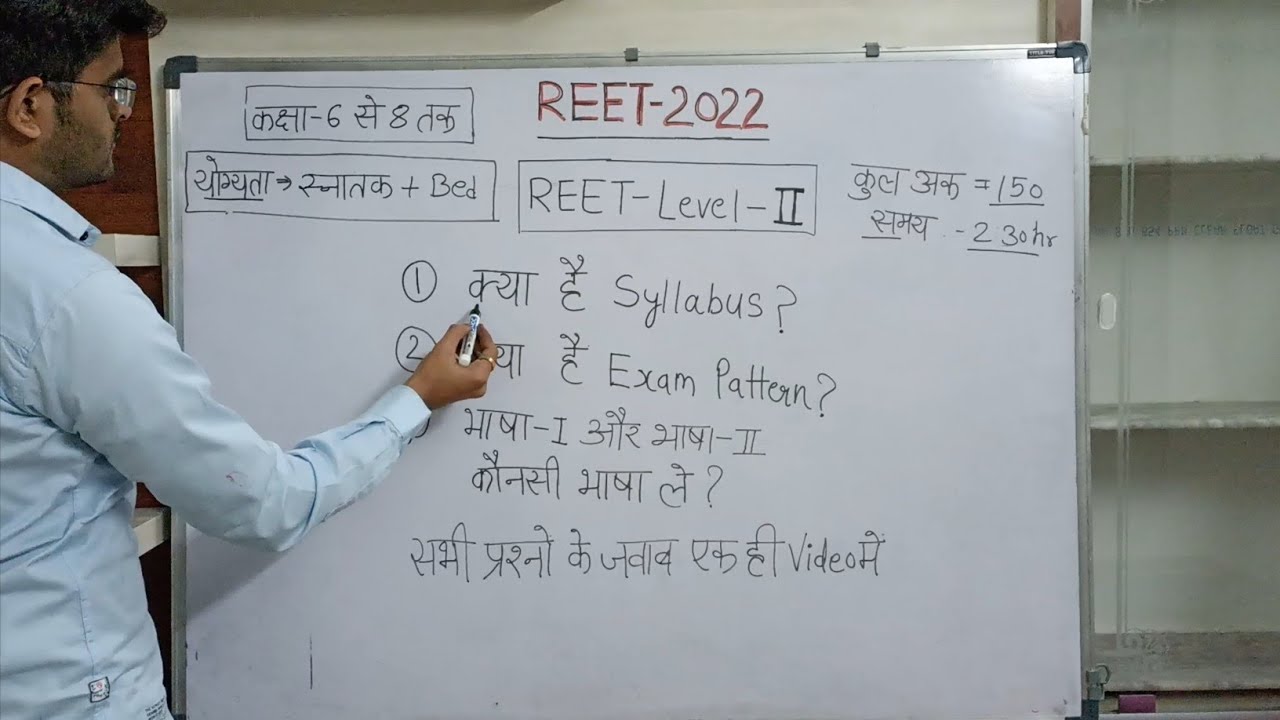 REET-2022
कक्षा-6 से 8 तक
योग्यता → स्नातक + Bed
REET-Level-II
कुल अक = 150
समय - 2:30hr
① क्या है Syllabus?
② क्या है Exam Pattern?
भाषा-I और भाषा-II
कौनसी भाषा ले?
सभी प्रश्नो के जवाब एक ही Video में